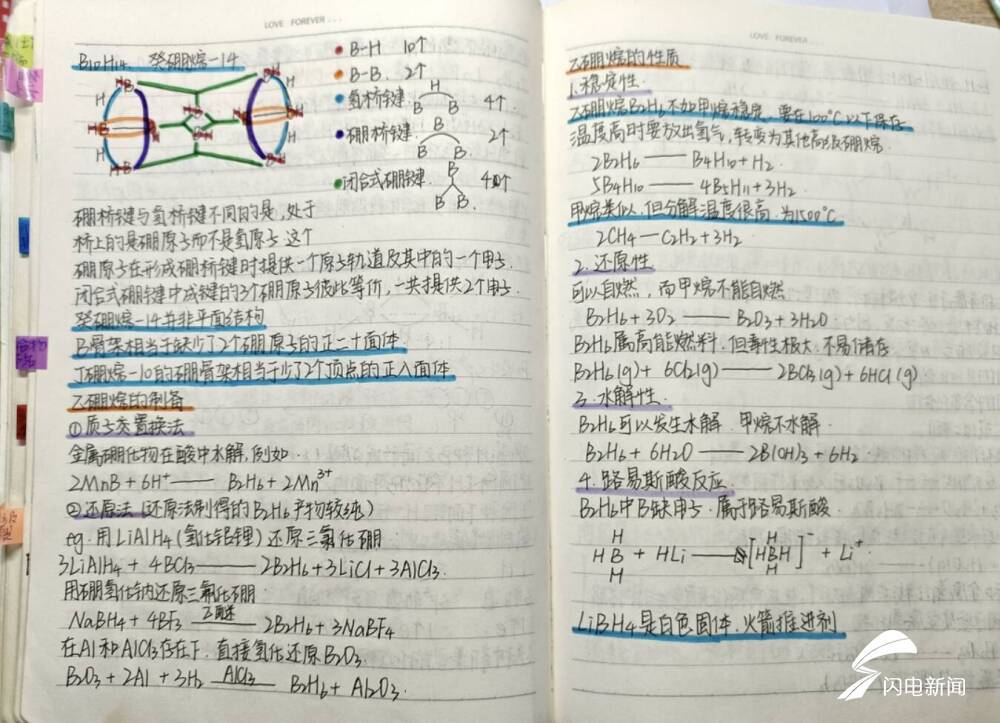 LOVE FOREVER...
B10H14. 癸硼烷-14
B-H 10个
B-B. 2个
氢桥键 H B B 4个.
硼桥键. B B B 2个
闭合式硼键. B B B 4个
硼桥键与氢桥键不同的是,处于
桥上的是硼原子而不是氢原子.这个
硼原子在形成硼桥键时提供一个原子轨道及其中的一个电子.
闭合式硼键中成键的3个硼原子彼此等价,一共提供2个电子.
癸硼烷-14并非平面结构
B骨架相当于缺少了2个硼原子的正二十面体.
丁硼烷-10的硼骨架相当于少了2个顶点的正八面体
乙硼烷的制备
①质子置换法
金属硼化物在酸中水解,例如
2MnB + 6H+ —— B2H6 + 2Mn3+
②还原法(还原法制得的B2H6产物较纯)
eg. 用LiAlH4(氢化铝锂)还原三氯化硼
3LiAlH4 + 4BCl3 —— 2B2H6 + 3LiCl + 3AlCl3.
用硼氢化钠还原三氟化硼
NaBH4 + 4BF3 —乙醚— 2B2H6 + 3NaBF4
在Al和AlCl3存在下,直接氢化还原B2O3.
B2O3 + 2Al + 3H2 —AlCl3— B2H6 + Al2O3.
LOVE FOREVER...
乙硼烷的性质
1.稳定性.
乙硼烷B2H6不如甲烷稳定,要在100°C以下保存
温度高时要放出氢气,转变为其他高级硼烷.
2B2H6 —— B4H10 + H2
5B4H10 —— 4B5H11 + 3H2
甲烷类似,但分解温度很高,为1500°C.
2CH4 — C2H2 + 3H2
2.还原性
可以自燃,而甲烷不能自燃
B2H6 + 3O2 —— B2O3 + 3H2O
B2H6属高能燃料,但毒性极大,不易储存
B2H6(g) + 6Cl2(g) —— 2BCl3(g) + 6HCl(g)
3.水解性
B2H6可以发生水解,甲烷不水解.
B2H6 + 6H2O —— 2B(OH)3 + 6H2.
4.路易斯酸反应
B2H6中B缺电子,属于路易斯酸.
H H
HB + HLi —— [HBH]- + Li+.
H H
LiBH4是白色固体,火箭推进剂
闪电新闻